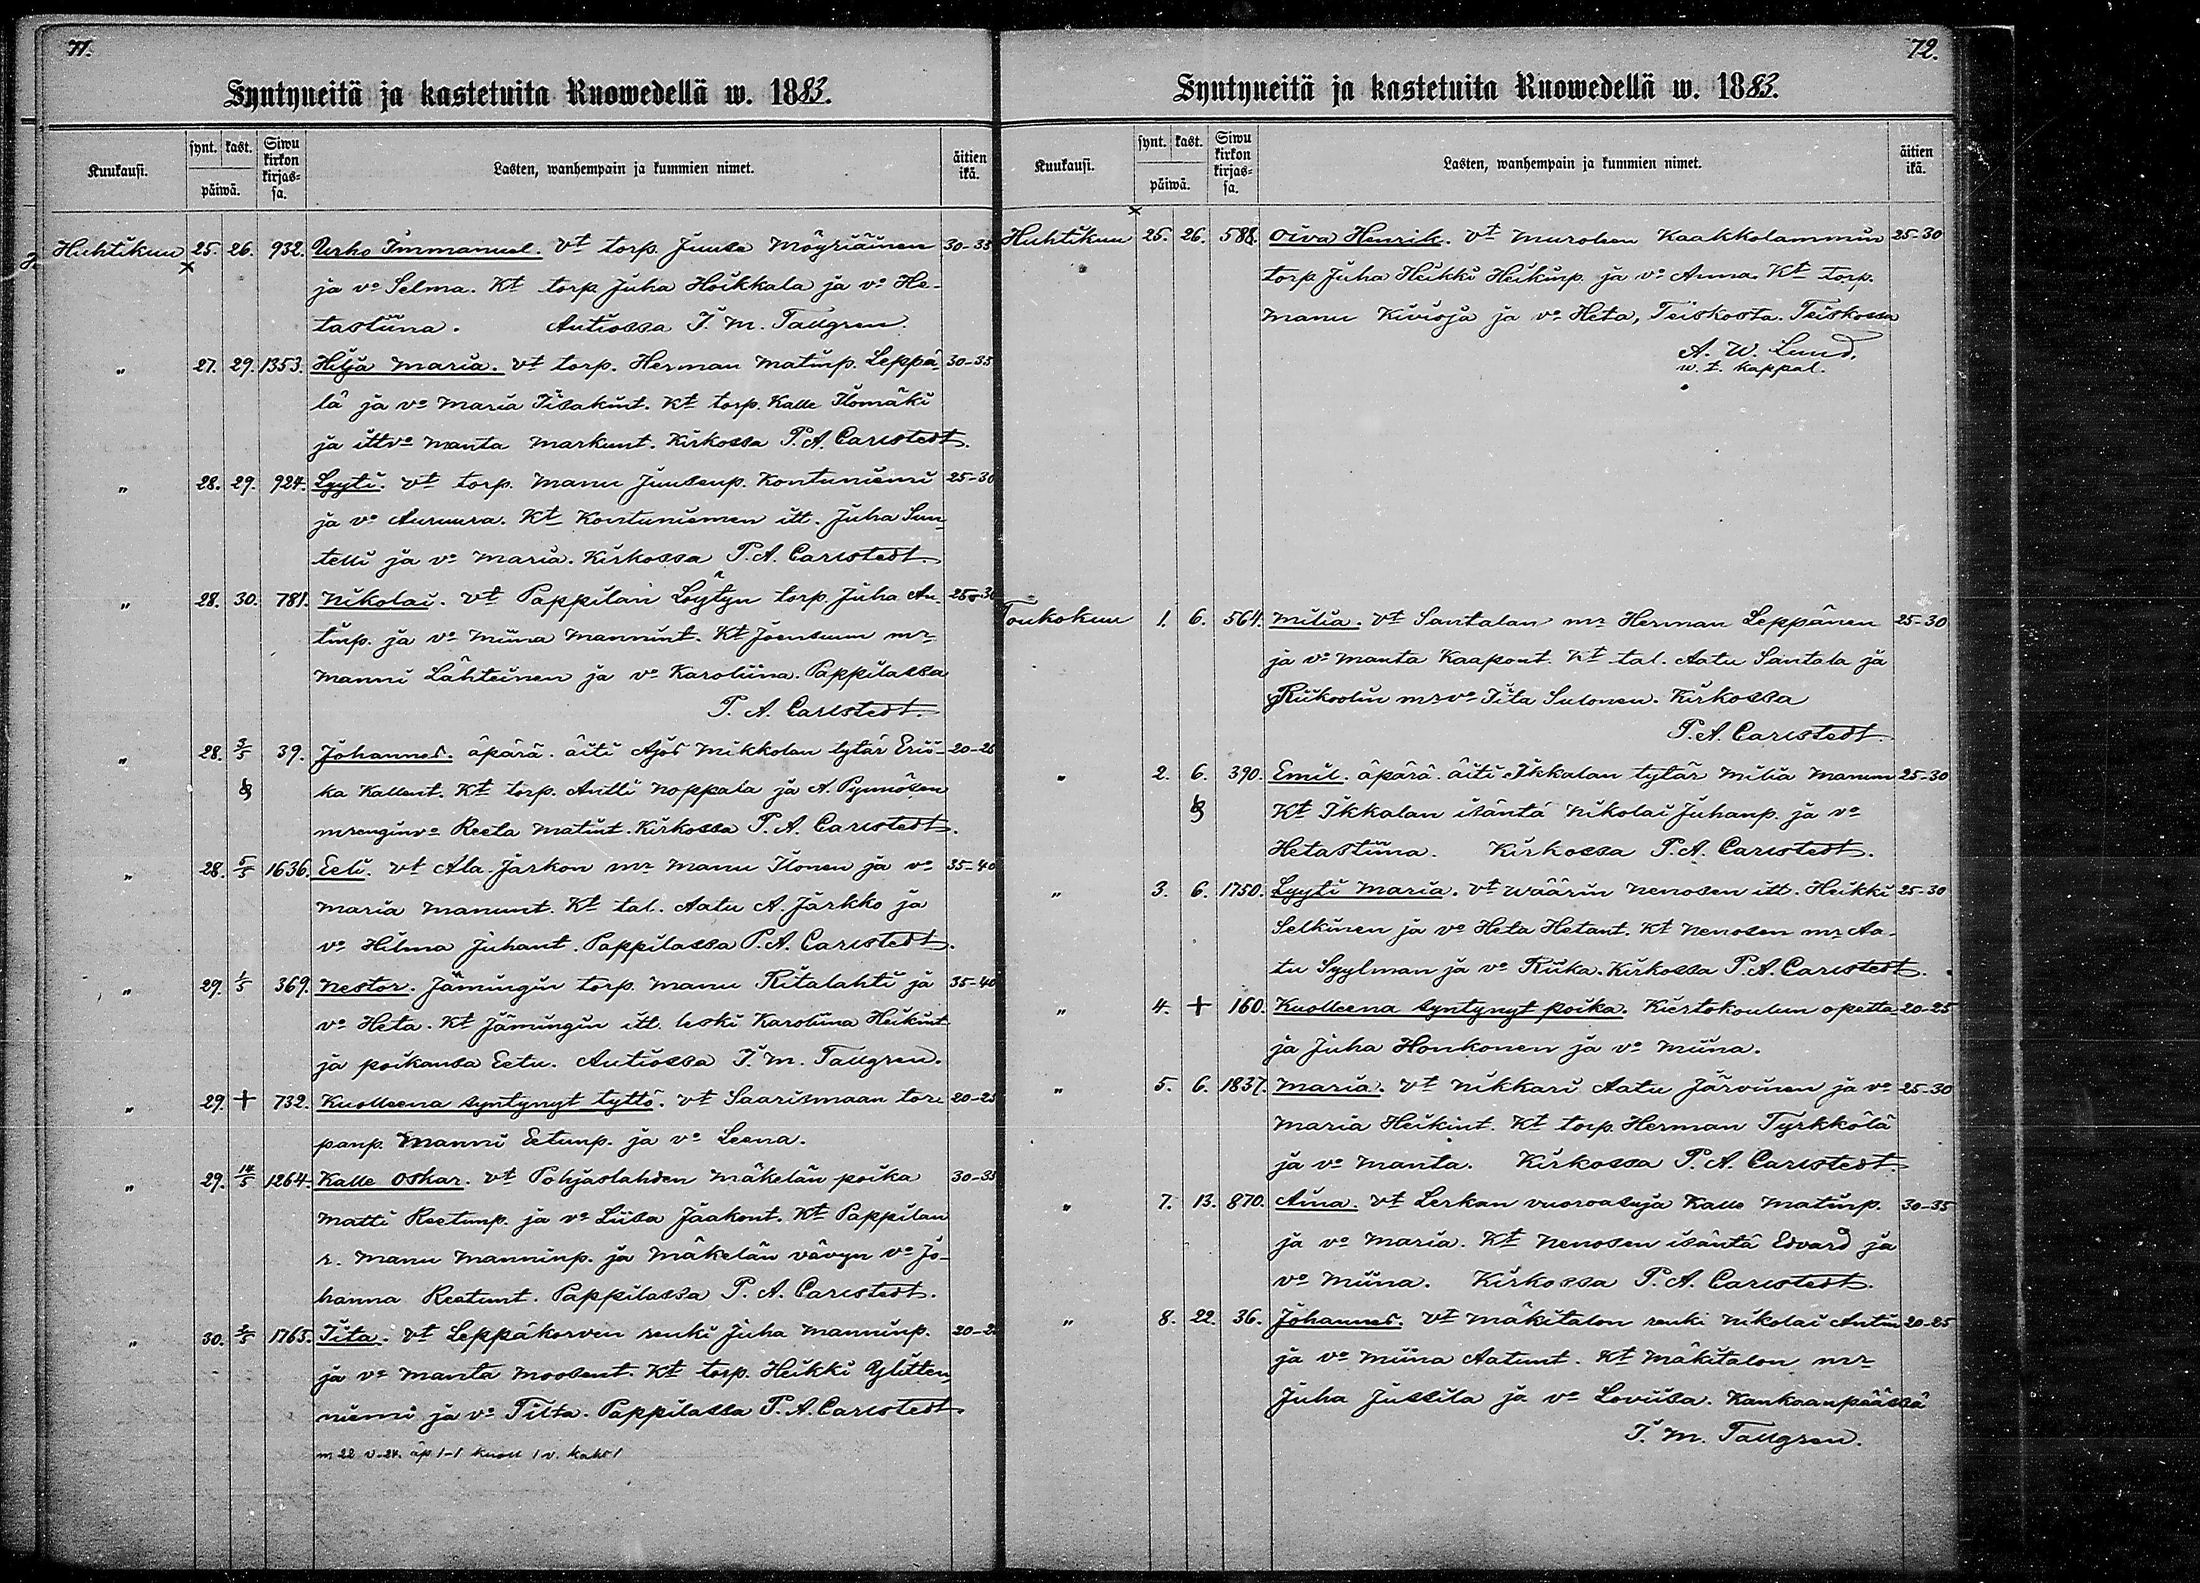 71.
Syntyneitä ja kastetuita Ruowedellä w. 1883.
Kuukausi. synt. kast. päiwä. Siwu kirkon kirjas- sa. Lasten, wanhempain ja kummien nimet. äitien ikä.
Huhtikuu 25. 26. 932. Urho Immanuel. vt torp. Juuse Möyriäinen 30-35
ja vo Selma. Kt torp. Juha Hoikkala ja vo He-
tastiina. Autiossa I. M. Tallgren.
" 27. 29. 1353. Hilja Maria. vt torp. Herman Matinp. Leppä 30-35
lä ja vo Maria Iisakint. Kt torp. Kalle Ilomäki
ja ittvo Manta Markunt. Kirkossa P. A. Carlstedt.
" 28. 29. 924. Lyyti. vt torp. Manu Juusenp. Kontuniemi 25-30
ja vo Auruura. Kt Kontuniemen itt. Juha Sun-
telli ja vo Maria. Kirkossa P. A. Carlstedt.
" 28. 30. 781. Nikolai. vt Pappilan Löytyn torp. Juha An- 25-30
tinp. ja vo Miina Mannint. Kt Joensuun mr
Manni Lähteinen ja vo Karoliina. Pappilassa
P. A. Carlstedt.
" 28. 3/5 39. Johannes. äpärä. äiti Ajos Mikkolan tytär Erii- 20-25
ka Kallent. Kt torp. Antti Noppala ja A. Pynnösen
mrenginvo Reeta Matint. Kirkossa P. A. Carlstedt.
" 28. 5/5 1636. Eeli. vt Ala Jarkon mr Manu Ilonen ja vo 35-40
Maria Manunt. Kt tal. Aatu A. Järkko ja
vo Hilma Juhant. Pappilassa P. A. Carlstedt.
" 29. 1/5 369. Nestor. Jämingin torp. Manu Ritalahti ja 35-40
vo Heta. Kt Jämingin itt. leski Karoliina Heikint
ja poikansa Eetu. Autiossa I. M. Tallgren.
" 29. + 732. Kuolleena syntynyt tyttö. vt Saarismaan tor- 20-25
panp. Manni Eetunp. ja vo Leena.
" 29. 14/5 1264. Kalle Oskar. vt Pohjaslahden Mäkelän poika 30-35
Matti Reetunp. ja vo Liisa Jaakont. Kt Pappilan
r. Manu Manninp. ja Mäkelän vävyn vo Jo-
hanna Reetunt. Pappilassa P. A. Carlstedt.
" 30. 2/5 1765. Iita. vt Leppäkorven renki Juha Manninp. 20-2
ja vo Manta Moosent. Kt torp. Heikki Ylitten-
niemi ja vo Tilta. Pappilassa P. A. Carlstedt.
m. 22 v-24. äp 1-1 kuoll 1 v. kaks 1
72.
Syntyneitä ja kastetuita Ruowedellä w. 1883.
Kuukausi. synt. kast. päiwä. Siwu kirkon kirjas- sa. Lasten, wanhempain ja kummien nimet. äitien ikä.
Huhtikuu 25. 26. 588. Oiva Henrik. vt Muroleen Kaakkolammin 25-30
torp. Juha Heikki Heikinp. ja vo Anna. Kt torp.
Manu Kivioja ja vo Heta, Teiskosta. Teiskossa
A. W. Lund.
w. t. kappal.
Toukokuu 1. 6. 564. Milia. vt Santalan mr Herman Leppänen 25-30
ja vo Manta Kaapont. Kt tal. Aatu Santala ja
Riikoolin mrvo Iita Sulonen. Kirkossa
P. A. Carlstedt.
" 2. 6. 390. Emil. äpärä. äiti Ikkalan tytär Milia Manun 25-30
Kt Ikkalan isäntä Nikolai Juhanp. ja vo
Hetastiina. Kirkossa P. A. Carlstedt.
" 3. 6. 1750. Lyyti Maria. vt Wäärin Nenosen itt. Heikki 25-30
Selkinen ja vo Heta Hetant. Kt Nenosen mr Aa-
tu Syylman ja vo Riika. Kirkossa P. A. Carlstedt.
" 4. + 160. Kuolleena syntynyt poika. Kiertokoulun opetta- 20-25
ja Juha Honkonen ja vo Miina.
" 5. 6. 1837. Maria. vt Nikkari Aatu Järvinen ja vo 25-30
Maria Heikint. Kt torp. Herman Tyrkkölä
ja vo Manta. Kirkossa P. A. Carlstedt.
" 7. 13. 870. Aina. vt Lerkan vuoroasuja Kalle Matinp. 30-35
ja vo Maria. Kt Nenosen isäntä Edvard ja
vo Miina. Kirkossa P. A. Carlstedt.
" 8. 22. 36. Johannes. vt Mäkitalon renki Nikolai Antin 20-25
ja vo Miina Aatunt. Kt Mäkitalon mr
Juha Jussila ja vo Loviisa. Kankaanpäässä
I. M. Tallgren.